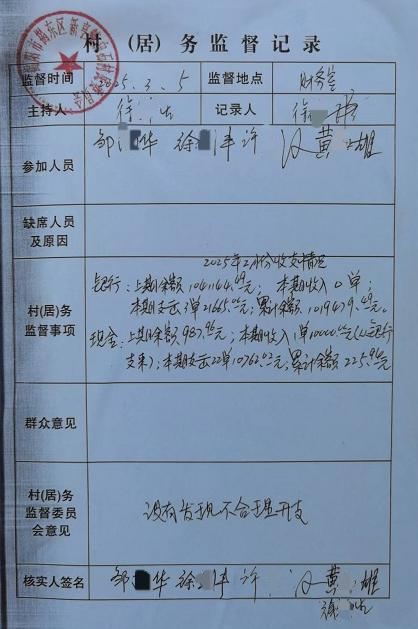 村（居）务监督记录
监督时间 2025.3.5 监督地点 财务室
主持人 徐 记录人 徐
参加人员 邹 华 徐 许 黄 雄
缺席人员
及原因
2025年2月份收支情况
银行：上期余额1041144.49元；本期收入0单；
本期支出1单21665.00元；累计余额1019479.49元。
村(居)务
监督事项
现金：上期余额987.96元；本期收入1单10000.00元(从银行
支来)；本期支出22单10762.02元；累计余额225.94元
群众意见
村(居)务
监督委员
会意见
没有发现不合理开支
核实人签名 邹 华 徐 许 黄 雄